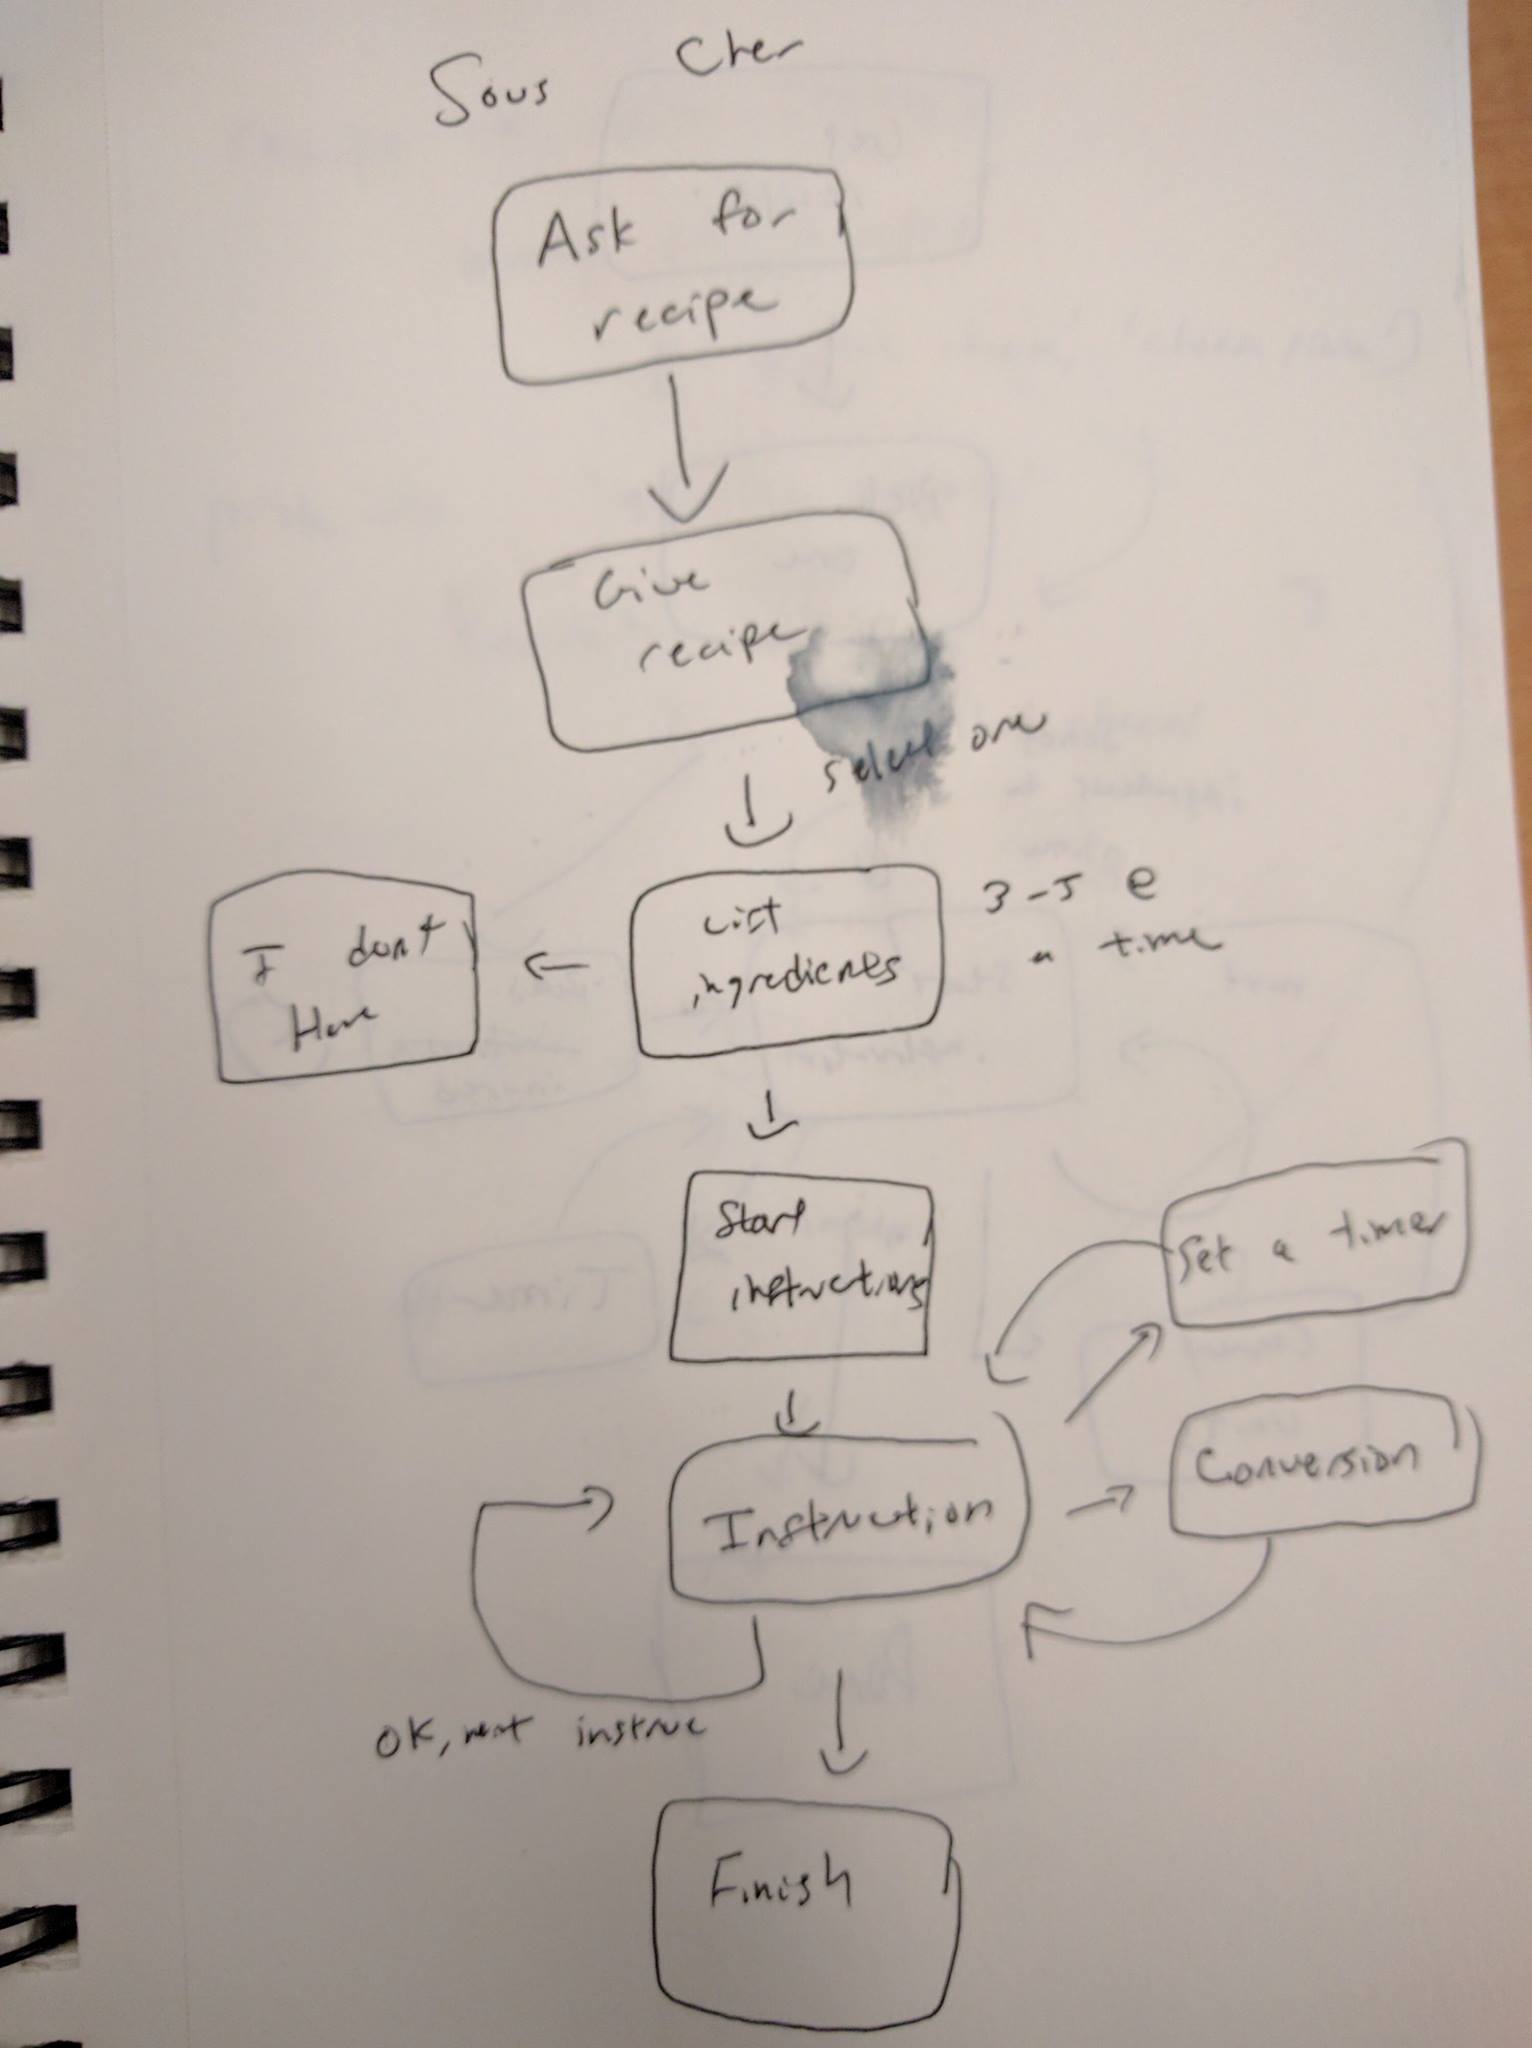 Sous Chef
Ask for
recipe
Give
recipe
select one
List
ingredients
3-5 @
a time
I don't
Have
Start
instructions
Set a timer
Conversion
Instruction
OK, next instruc
Finish